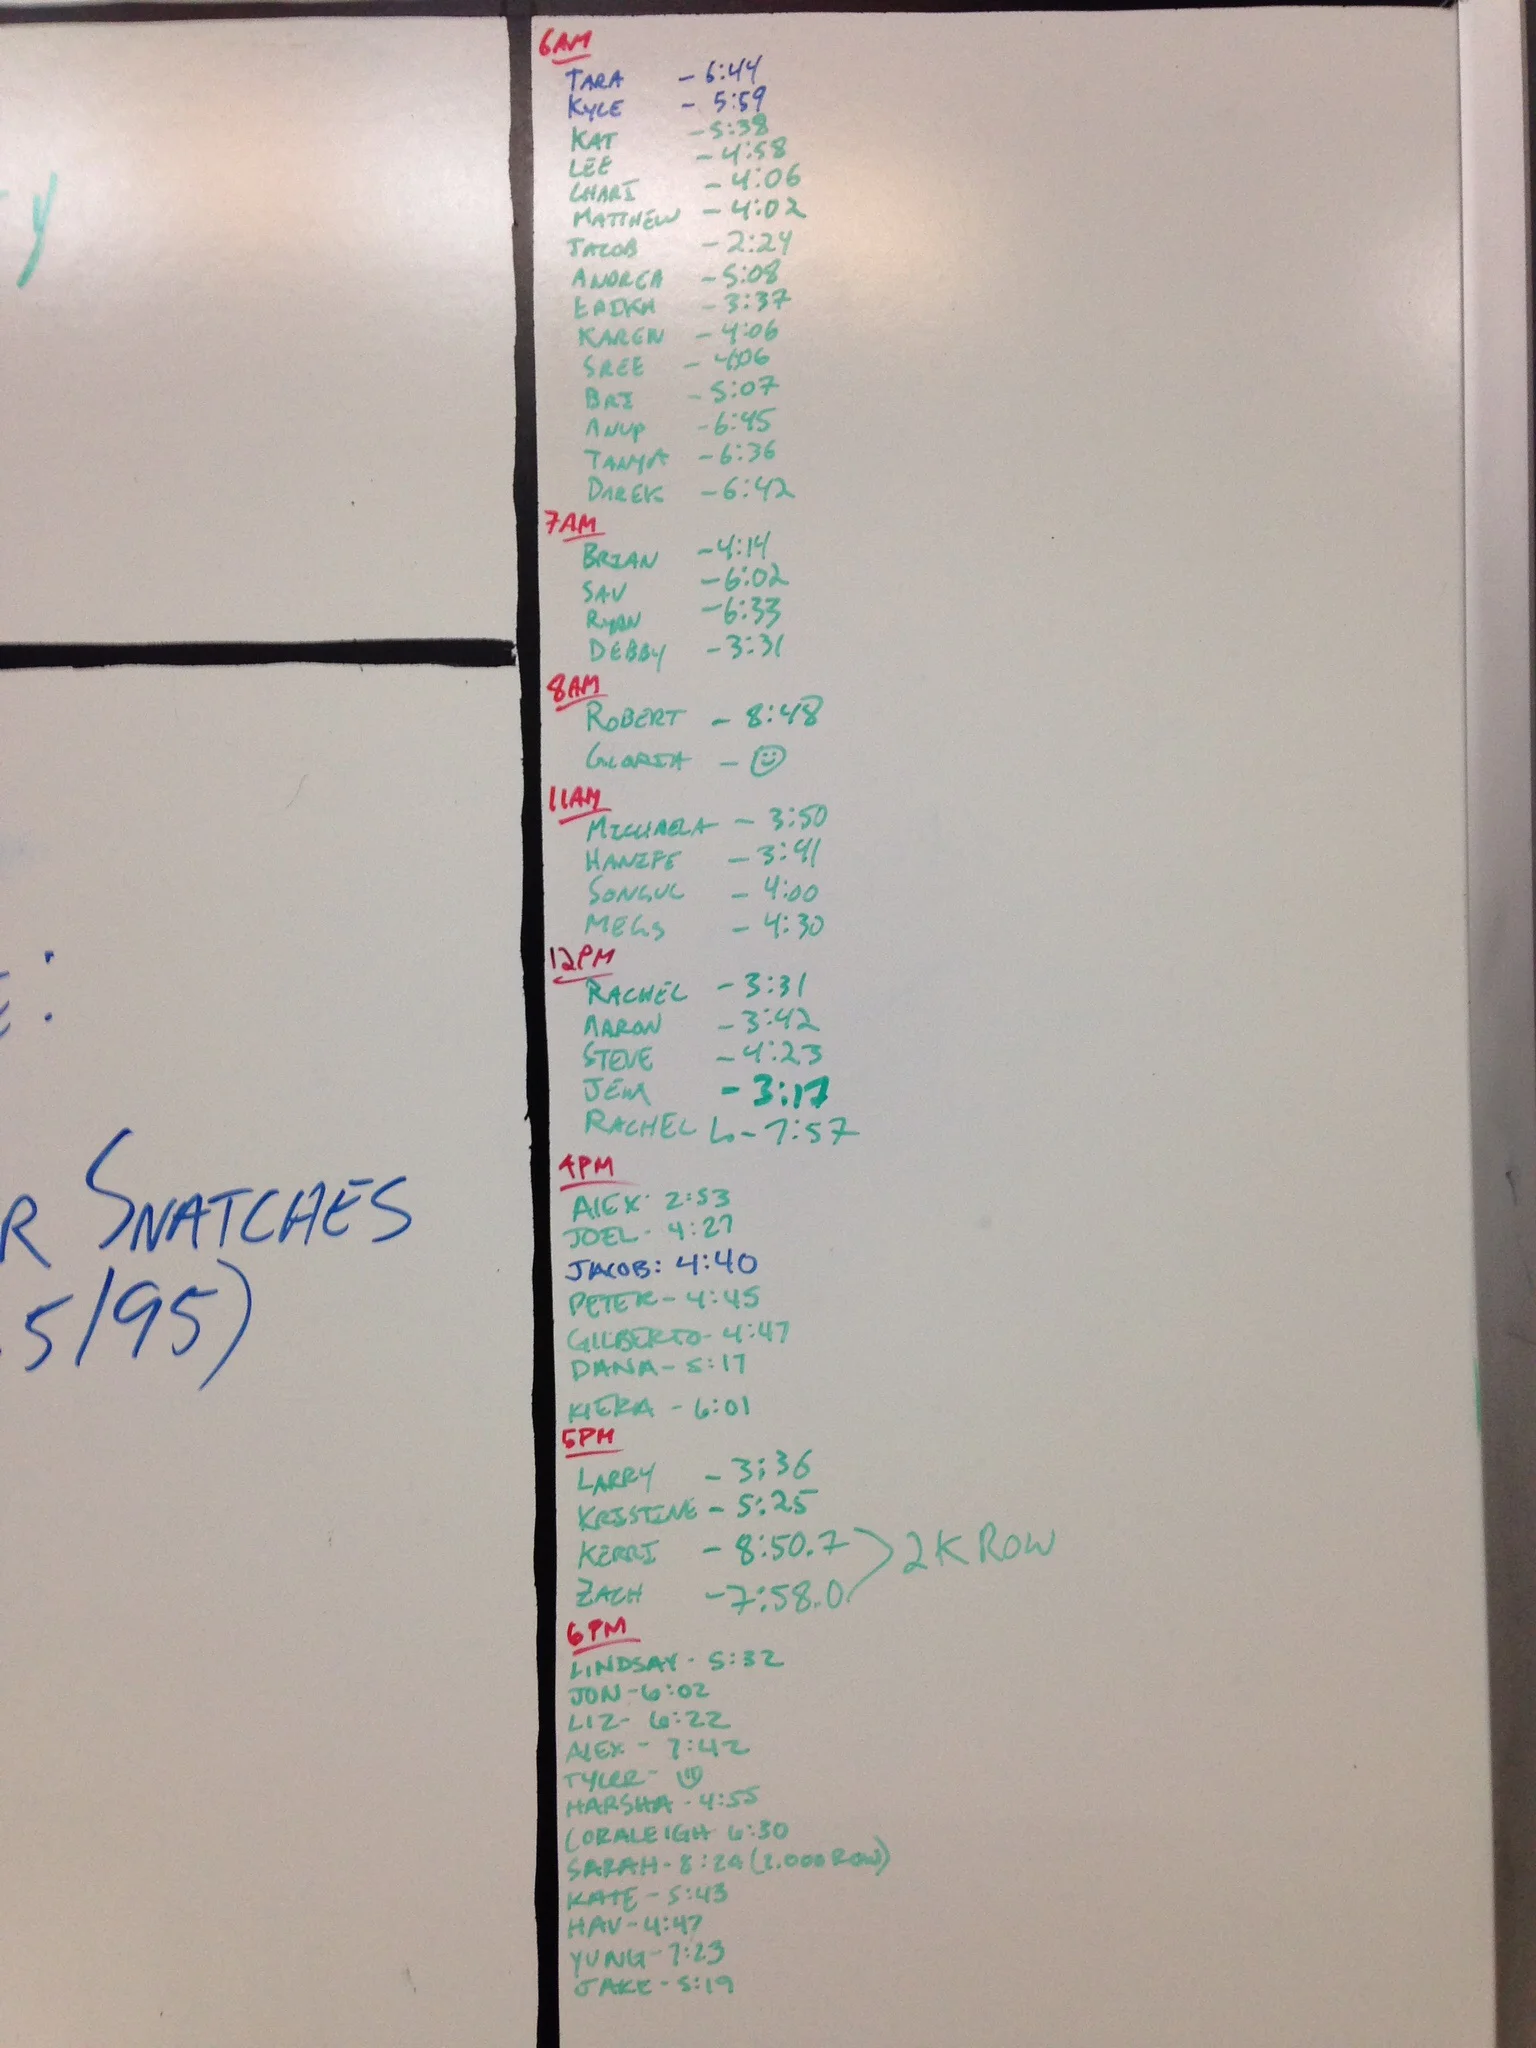 y
E:
R SNATCHES
5/95)
6AM
TARA - 6:44
KYLE - 5:59
KAT - 5:38
LEE - 4:58
CHARI - 4:06
MATTHEW - 4:02
JACOB - 2:24
ANDREA - 5:08
ERIKA - 3:37
KAREN - 4:06
SREE - 4:06
BRI - 5:07
ANUP - 6:45
TANYA - 6:36
DAREK - 6:42
7AM
BRIAN - 4:14
SAV - 6:02
RYAN - 6:33
DEBBY - 3:31
8AM
ROBERT - 8:48
GLORIA - ☺
11AM
MICHAELA - 3:50
HANIFE - 3:41
SONGUL - 4:00
MEGS - 4:30
12PM
RACHEL - 3:31
AARON - 3:42
STEVE - 4:23
JEM - 3:17
RACHEL L - 7:57
4PM
ALEX- 2:53
JOEL - 4:27
JACOB: 4:40
PETER - 4:45
GILBERTO- 4:47
DANA - 5:17
KIERA - 6:01
5PM
LARRY - 3:36
KRISTINE - 5:25
KERRI - 8:50.7
ZACH - 7:58.0
2K ROW
6PM
LINDSAY - 5:32
JON - 6:02
LIZ - 6:22
ALEX - 7:42
TYLER - ☺
HARSHA - 4:55
CORALEIGH 6:30
SARAH - 8:24 (2,000 ROW)
KATE - 5:43
HAV - 4:47
YUNG - 7:23
JAKE - 5:19